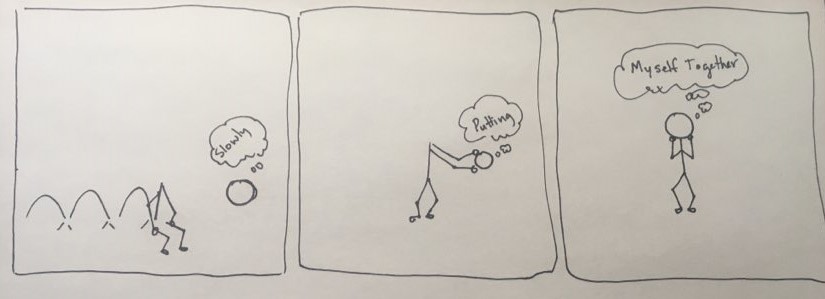 Slowly
Putting
Myself Together